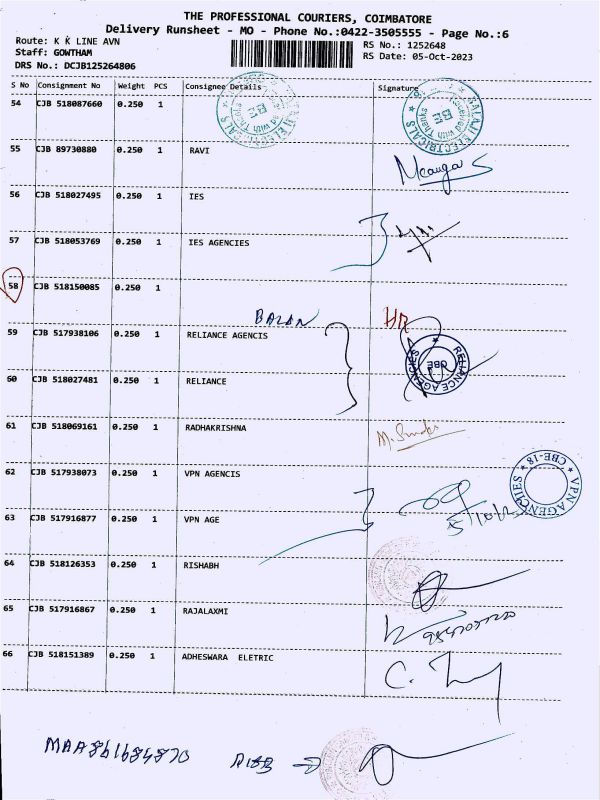 THE PROFESSIONAL COURIERS, COIMBATORE
Delivery Runsheet - MO - Phone No.:0422-3505555 - Page No.:6
Route: K K LINE AVN
RS No.: 1252648
Staff: GOWTHAM
RS Date: 05-Oct-2023
DRS No.: DCJB125264806
S No Consignment No Weight PCS Consignee Details Signature
54 CJB 518087660 0.250 1
BALAJI ELECTRICALS
Received with Thanks
BALAJI ELECTRICALS
Received with Thanks
55 CJB 89730880 0.250 1 RAVI
56 CJB 518027495 0.250 1 IES
57 CJB 518053769 0.250 1 IES AGENCIES
58 CJB 518150085 0.250 1
HR
59 CJB 517938106 0.250 1 RELIANCE AGENCIS
RELIANCE AGENCIES
CBE
60 CJB 518027481 0.250 1 RELIANCE
61 CJB 518069161 0.250 1 RADHAKRISHNA
62 CJB 517938073 0.250 1 VPN AGENCIS
VPN AGENCIES CBE-18
63 CJB 517916877 0.250 1 VPN AGE
64 CJB 518126353 0.250 1 RISHABH
65 CJB 517916867 0.250 1 RAJALAXMI
66 CJB 518151389 0.250 1 ADHESWARA ELETRIC
MAA861684870